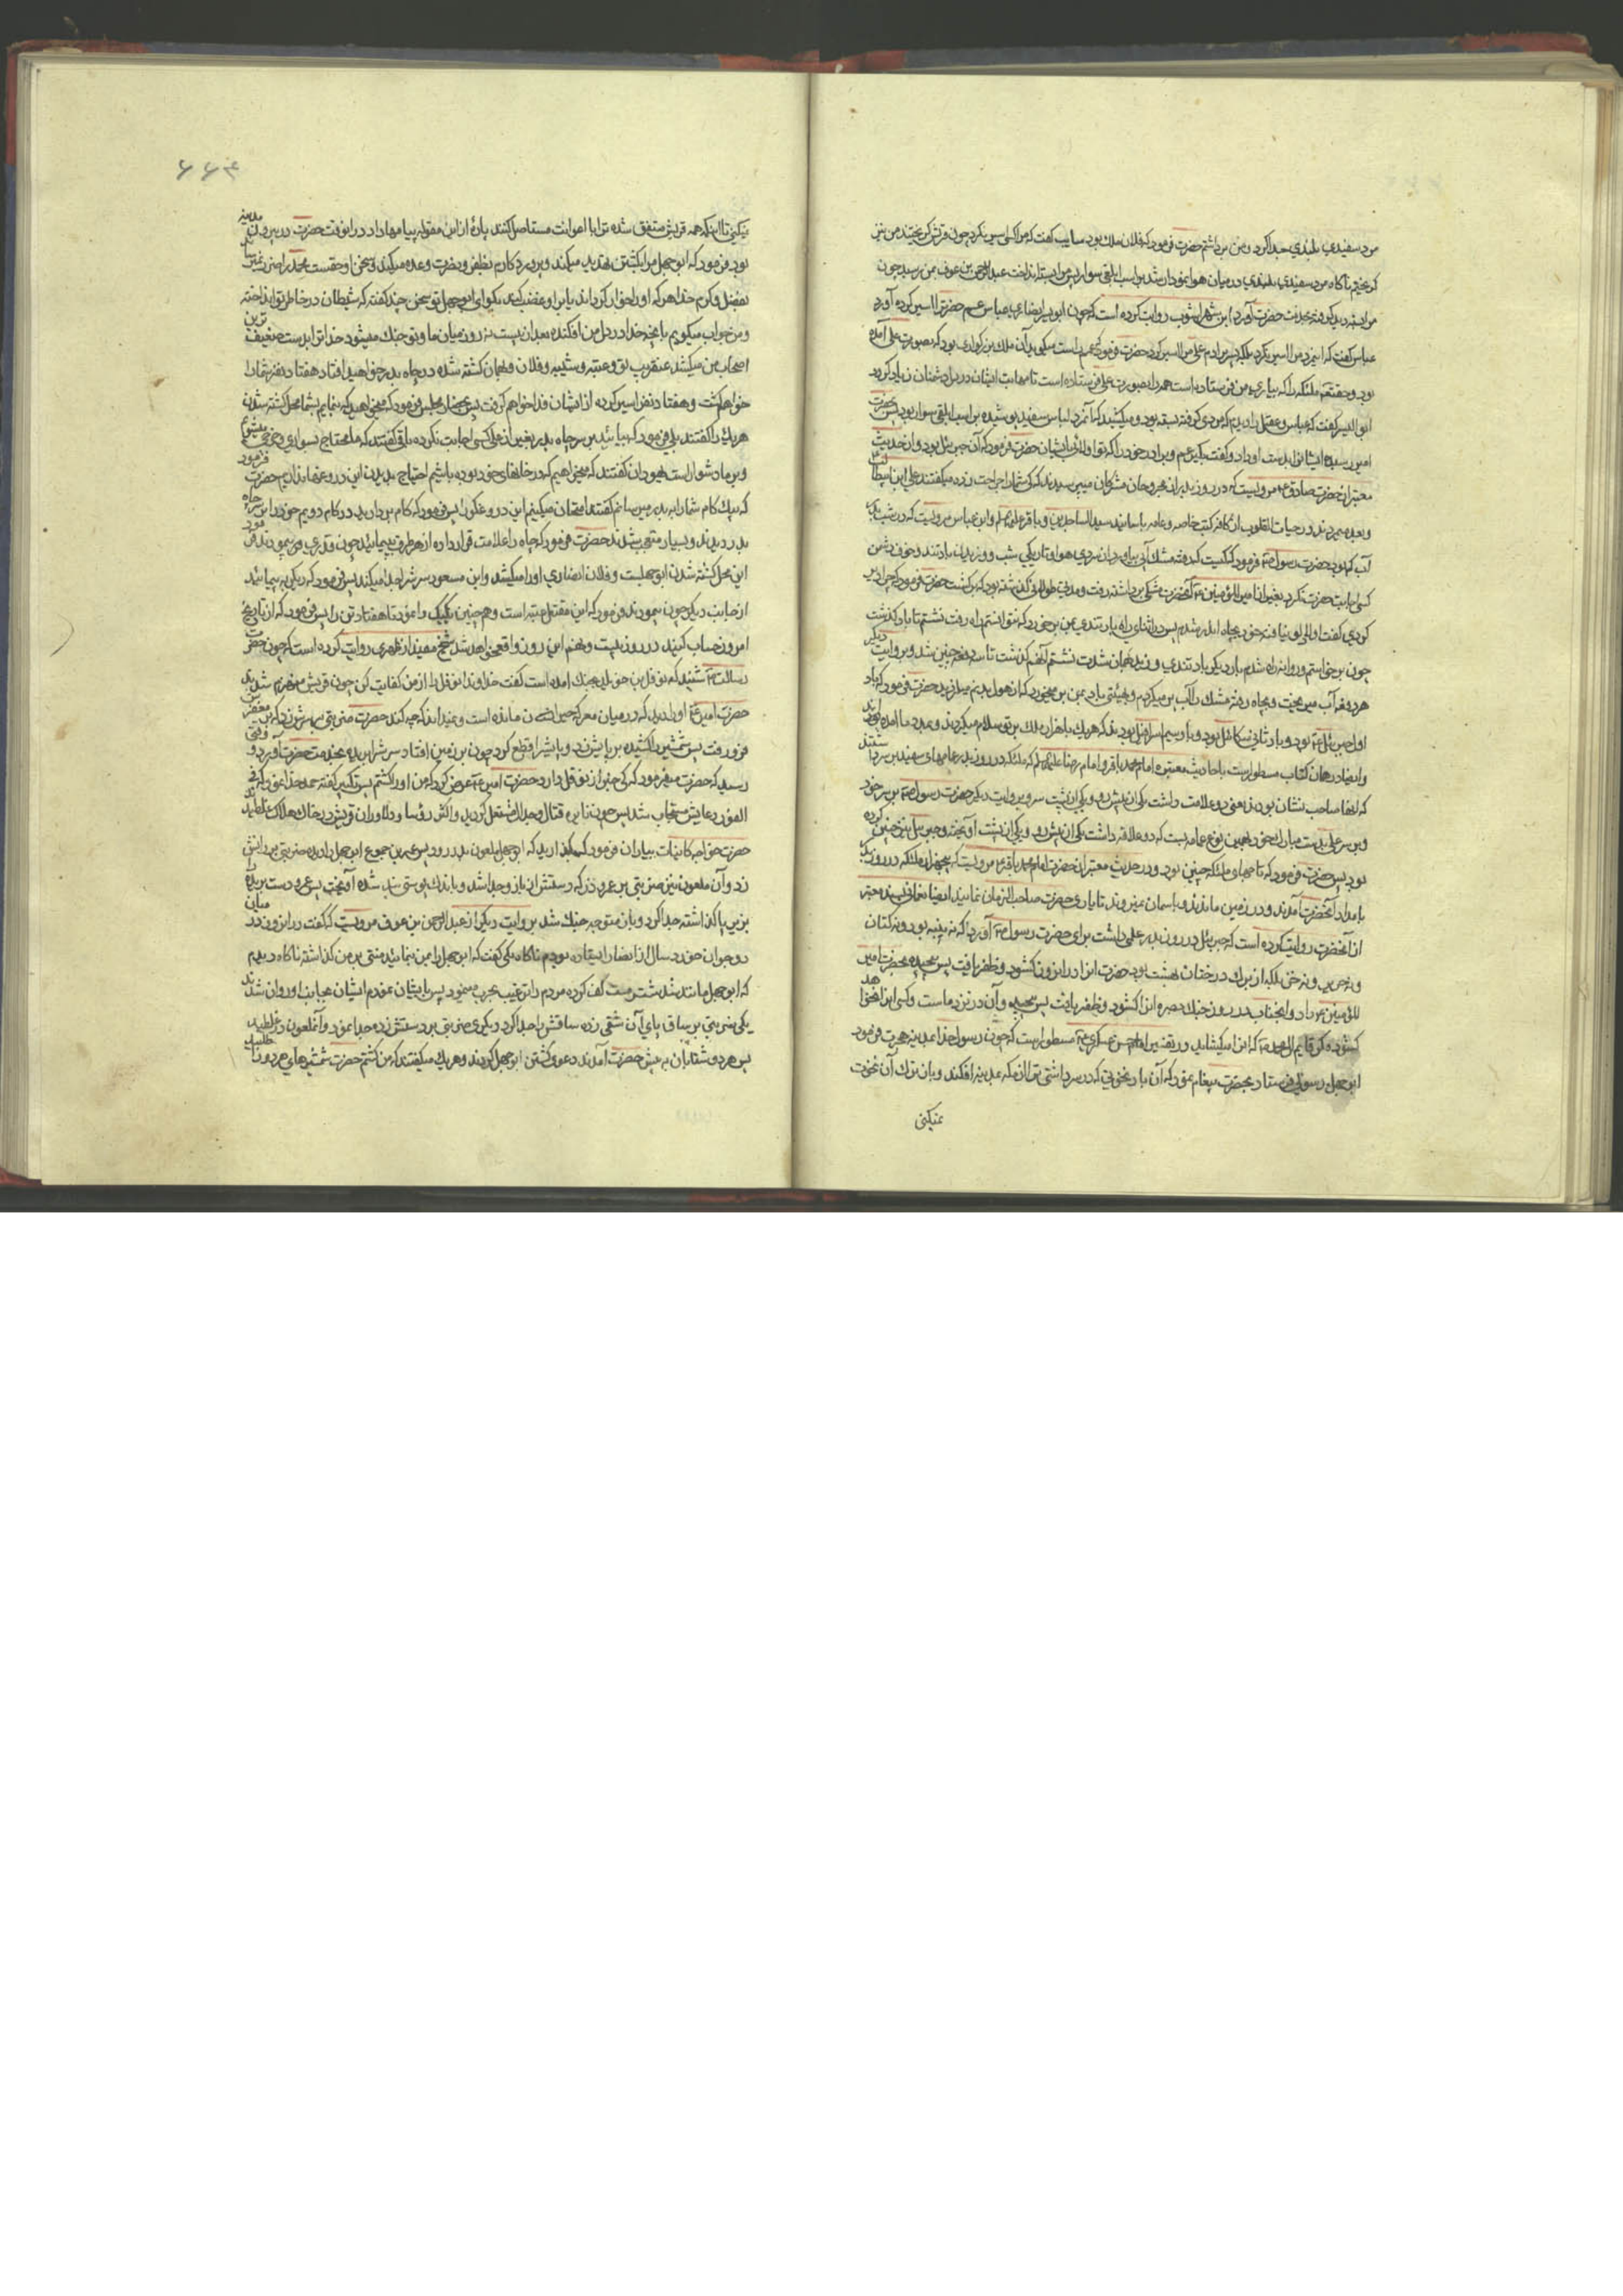 مرد سفیدی بلندی جدا کرد و من برداشتم حضرت فرمود که فلان ملك بود سایب گفت که مرا کسی اسیر نکرد چون قریش گریختند من نیز
گریختم ناگاه مرد سفیدی بلندی در میان هوا نمودار شد بر اسب ابلقی سوار پس مرا بست و انداخت عبد الرحمن بن عوف بمن رسید چون
مرا بسته دید گرفته بخدمت حضرت آورد ابن شهر اشوب روایت کرده است که چون ابو یسر انصاری عباس عم حضرت را اسیر کرده آورد
عباس گفت که این مرد من را اسیر نکرد بلکه پسر برادرم علی مرا اسیر کرد حضرت فرمود که عمم راست میگوید آن ملك بزرگواری بود که بصورت علی آمده
بود و حقتعالی ملئکه را که بیاری من فرستاده است همه را بصورت علی فرستاده است تا مهابت ایشان در دل دشمنان زیاد گردد
ابو الیسر گفت که عباس و عقیل را دیدم که مردی گرفته بود و میکشید که آنمرد لباس سفید پوشیده بر اسب ابلقی سوار بود پس حضرت
امیر رسید ایشانرا بدست او داد و گفت بگیر عم و برادر خود را که تو اولائی بایشان حضرت فرمود که آن جبرئیل بود و در حدیث
معتبر از حضرت صادق ع مرویست که در روز بدر از مجروحان مشرکان میپرسیدند که کی شما را جراحت زده میگفتند علی ابن ابیطالب
و بعد میمردند در حیات القلوب از کافه کتب خاصه و عامه باسانید سید الساجدین و باقر علیهما السلام و ابن عباس مرویست که در شب بدر
آب کم بود حضرت رسول ص فرمود که کیست که رفته مشك آبی بیاورد از سردی هوا و تاریکی شب و وزیدن باد تند و خوف دشمن
کسی اجابت حضرت نکرد بغیر از امیر المؤمنین ع آنحضرت مشکی برداشته رفت و مدتی طولانی گذشته بود که برگشت حضرت فرمود که چرا دیر
کردی گفت دلوی نیافته خود بچاه اندر شدم پس در اثنای راه باد تندی بمن برخورد که نتوانستم راه رفت نشستم تا باد گذشت
چون برخواستم و روانه راه شدم بار دیگر باد تندی وزید بهمان شدت نشستم آنهم گذشت تا سه دفعه چنین شد و بروایت دیگر
هر دفعه آب میریخت و بچاه رفته مشك را آب پر میکردم و بهیئتی باد بمن بر میخورد که از هول بدنم میلرزید حضرت فرمود که باد
اول جبرئیل ع بود و باد ثانی میکائیل بود و باد سیم اسرافیل بود بدند که هر یك با هزار ملك بر تو سلام میکردند و بمدد ما آمده بودند
و ایضا در همان کتاب مسطور است باحادیث معتبره امام محمد باقر و امام رضا علیهما السلام که ملئکه در روز بدر عمامهای سفید بر سر داشتند
که انها صاحب نشان بودند یعنی دو علامت داشت یکی از پیش رو و یکی از پشت سر و بروایت دیگر حضرت رسول ص بر سر خود
و بر سر علی بدست مبارك خود بهمین نوع عمامه بست که دو علاقه داشت یکی از پیش رو و یکی از پشت آویخته و جبرئیل نیز چنین کرده
بود پس حضرت فرمود که تاجهای ملئکه چنین بود و در حدیث معتبر از حضرت امام محمد باقر ع مرویست که پنجهزار ملئکه در روز بدر
بامداد آنحضرت آمدند و در زمین ماندند و باسمان نمیروند تا یاری حضرت صاحب الزمان نمایند ایضا نعمانی بسند معتبر
از آنحضرت روایت کرده است که جبرئیل در روز بدر علمی داشت برای حضرت رسول ص آورد که نه پنبه بود و نه کتان
و نه حریر و نه خز بلکه از برك درختان بهشت بود حضرت انرا در انروز گشود و ظفر یافت پس پیچیده بحضرت امیر
المؤمنین ع داد و ایجناب در روز جنك بصره انرا گشود و ظفر یافت پس پیچیده و آن در نزد ماست و کسی انرا نخواهد
گشود مگر قایم ال محمد ص که انرا میکشاید و در تفسیر امام حسن عسکری ع مسطور است که چون رسولخدا بمدینه هجرت فرمود
ابو جهل رسولی فرستاد بحضرت پیغام نمود که آن باد نخوتی که در سر داشتی ترا از مکه بمدینه افکند و باز ترك آن نخوت
نمیکنی
۶۶۴
نمیکنی تا اینکه همه قریش متفق شده ترا با اعوانت مستاصل کنند پارۀ از این مقوله پیامها داد در انوقت حضرت در بیرون مدینه
بود فرمود که ابو جهل مرا بکشتن تهدید میکند و پروردگارم بظفر و نصرت وعده میکند و سخن او حقست بمحمد ضرر نمیرساند
بفضل و کرم خدا هر که او را خوار گرداند یا بر او غضب کند بگو ای ابو جهل تو سخنی چند گفته که شیطان در خاطر تو انداخته
و من جواب میگویم بانچه خدا در دل من افکنده بعد از بیست نه روز میان ما و تو جنك میشود خدا ترا بدست ضعیف ترین
اصحاب من میکشد عنقریب تو و عتبه و شیبه و فلان و فلان کشته شده در چاه بدر خواهید افتاد هفتاد نفر شما را
خواهم کشت و هفتاد نفر اسیر کرده از ایشان فدا خواهم گرفت پس بحضار مجلس فرمود که میخواهید که بنمایم بشما محل کشته شدن
هر یك را گفتند بلی فرمود که بیائید بر سر چاه بدر بغیر از علی کسی اجابت نکرده باقی گفتند که ما محتاج بسواری و خرجی میشویم
و بر ما دشوار است یهودان گفتند که میخواهیم که در خانهای خود بوده باشیم احتیاج بدیدن این دروغها نداریم حضرت فرمود
که بیك گام شما را به بدر میرسانم گفتند امتحان میکنیم این دروغگو را پس فرمود که گام بردارید در گام دویم خود را بر سر چاه
بدر دیدند و بسیار متعجب شدند حضرت فرمود که چاه را علامت قرار داده از هر طرف بپیمائید چون قدری پیمودند فرمود
این محل کشته شدن ابو جهلست و فلان انصاری او را میکشد و ابن مسعود سرش را جدا میکند پس فرمود که دیگر به پیمائید
از جانب دیگر چون پیمودند فرمود که این مقتل عتبه است و همچنین یکیك وا نمود تا هفتاد تن را پس فرمود که از تاریخ
امروز حساب کنید در روز بیست و نهم این روز واقع خواهد شد شیخ مفید از زهری روایت کرده است که چون حضرت
رسالت ص شنید که نوفل بن خویلد بجنك امده است گفت خداوندا نوفل را از من کفایت کن چون قریش منهزم شدند
حضرت امیر ع او را دید که در میان معرکه حیران مانده است و نمیداند که چه کند حضرت ضربتی بر سرش زد که بر مغفر آن
فرو رفت پس شمشیر را کشیده بر پایش زد و پایش را قطع کرد چون بر زمین افتاد سرش را بریده بخدمت حضرت آورد وقتی
رسید که حضرت میفرمود که کی خبر از نوفل دارد حضرت امیر ع عرض کرد که من او را کشتم پس تکبیر گفته حمد خدا نمود که فی
الفور دعایش مستجاب شد پس چون نایره قتال و جدال مشتعل گردید و اکثر رؤسا و دلاوران قریش در خاك هلاك غلطیدند
حضرت خواجه کاینات بیاران فرمود که مگذارید که ابو جهل ملعون بدر رود پس عمرو بن جموع ابو جهل را دیده ضربتی بر رانش
زد و آن ملعون نیز ضربتی بر عمرو زد که دستش از بازو جدا شد و باندك پوستی بند شده آویخت پس عمرو دست بریده را
بزیر پا گذاشته جدا کرد و باز متوجه جنك شد بروایت دیگر از عبد الرحمن بن عوف مرویست که گفت در انروز در میان
دو جوان خورد سال از انصار ایستاده بودم ناگاه یکی گفت که ابو جهل را بمن بنمائید منتی بر من گذاشته ناگاه دیدم
که ابو جهل مانند شتر مست کف کرده مردم را ترغیب بحرب مینمود پس بایشان نمودم ایشان بجانب او روان شدند
یکی ضربتی بر ساق پای آن شقی زده ساقش را جدا کرد و دیگری ضربتی بر دستش زده جدا نمود و آنملعون در غلطید
پس هر دو شتابان به پیش حضرت آمدند دعوی کشتن ابو جهل کردند و هر یك میگفتند که من کشتم حضرت شمشیرهای هر دو را طلبید